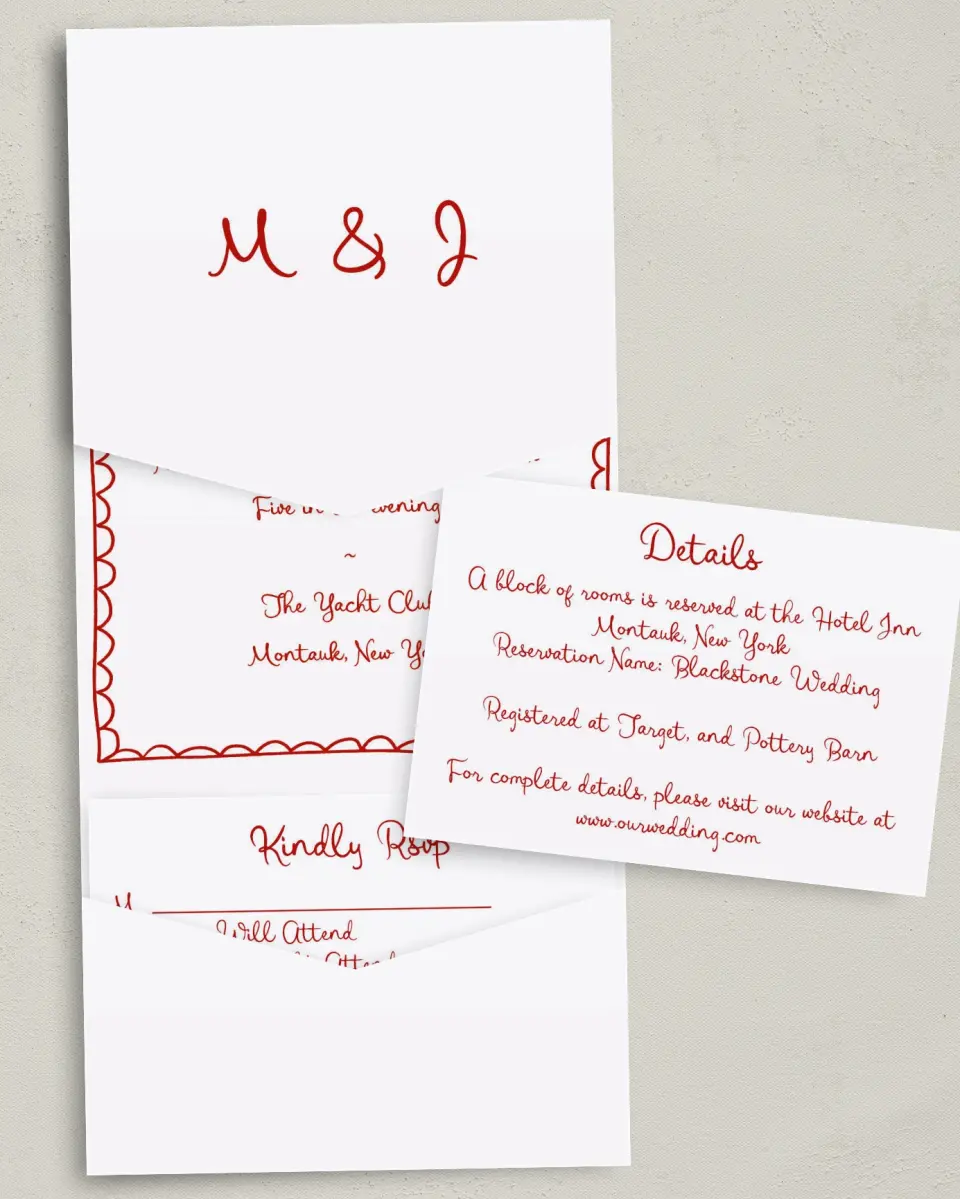 M & J
Five in evening
~
The Yacht Club
Montauk, New
Details
A block of rooms is reserved at the Hotel Inn
Montauk, New York
Reservation Name: Blackstone Wedding
Registered at Target, and Pottery Barn
For complete details, please visit our website at
www.ourwedding.com
Kindly Rsvp
M
Will Attend